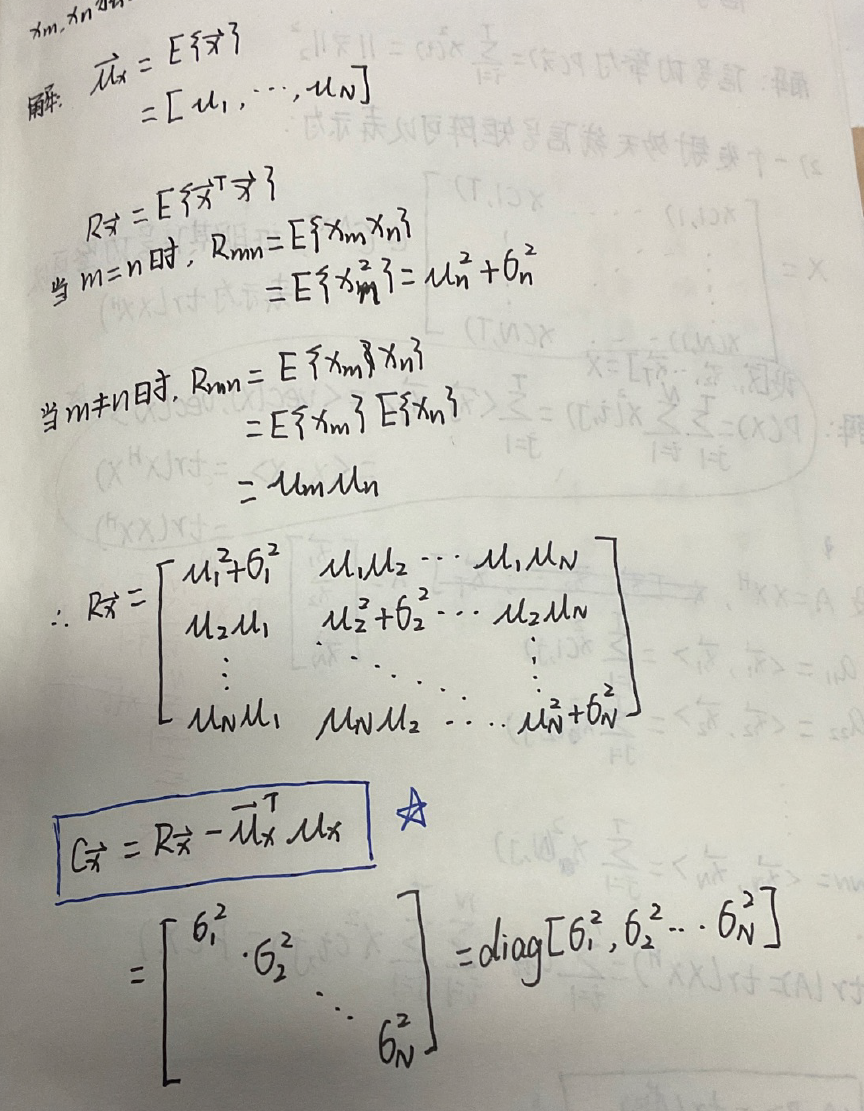 xm, xn
解: μ⃗x = E{x⃗}
= [μ1, ⋯, μN]
Rx⃗ = E{x⃗ᵀx⃗}
当m=n时, Rmn = E{xmxn}
= E{xm²} = μn² + σn²
当m≠n时, Rmn = E{xm xn}
= E{xm} E{xn}
= μmμn
∴ Rx⃗ = [ μ1²+σ1² μ1μ2 ⋯ μ1μN
μ2μ1 μ2²+σ2² ⋯ μ2μN
⋮ ⋱ ⋮
μNμ1 μNμ2 ⋯ μN²+σN² ]
Cx⃗ = Rx⃗ − μ⃗xᵀ μx ☆
= [ σ1² σ2² ⋱ σN² ] = diag[σ1², σ2² ⋯ σN²]